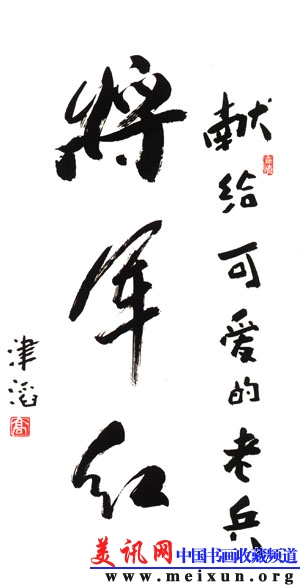 献给可爱的老兵
将军红
津滔
美讯网 中国书画收藏频道
www.meixun.org